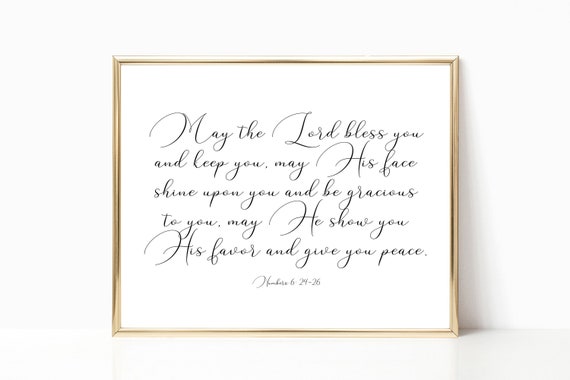 May the Lord bless you
and keep you, may His face
shine upon you and be gracious
to you, may He show you
His favor and give you peace.
Numbers 6:24-26